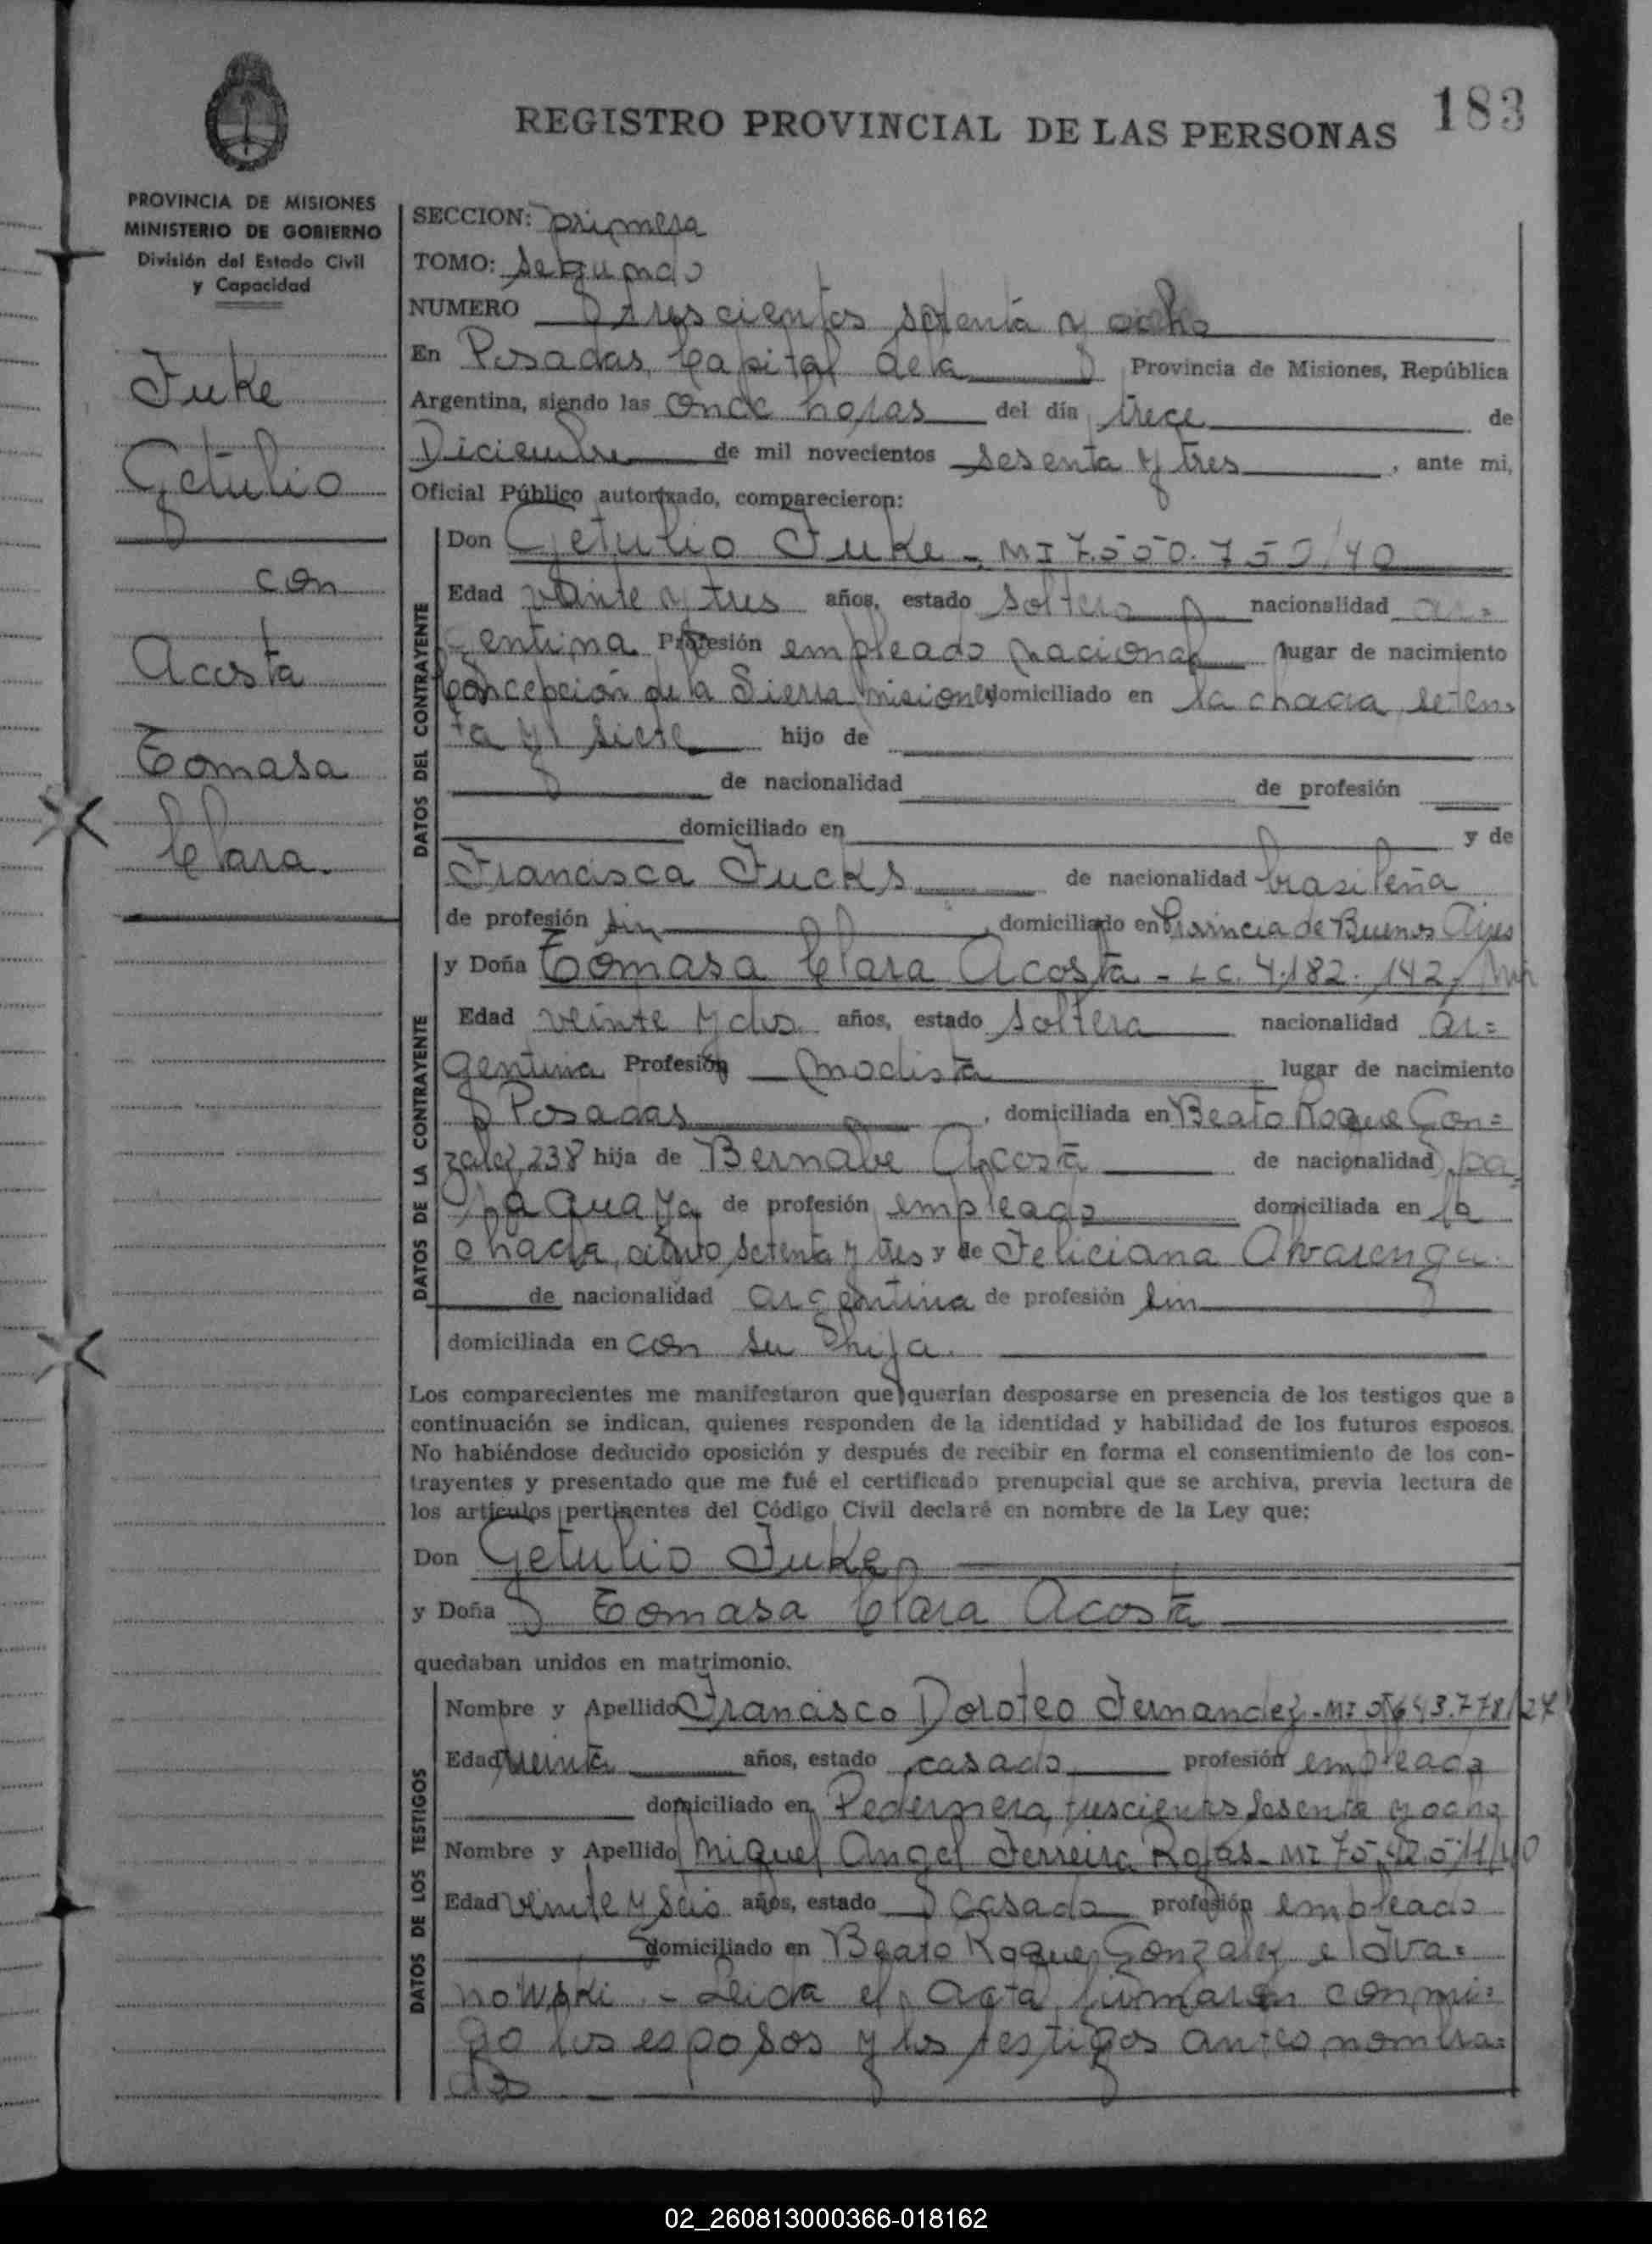 183
REGISTRO PROVINCIAL DE LAS PERSONAS
PROVINCIA DE MISIONES
MINISTERIO DE GOBIERNO
División del Estado Civil
y Capacidad
Fuke
Getulio
con
Acosta
Tomasa
Clara.
SECCION: primera
TOMO: segundo
NUMERO trescientos setenta y ocho
En Posadas, Capital de la Provincia de Misiones, República
Argentina, siendo las once horas del día trece de
Diciembre de mil novecientos sesenta y tres, ante mi,
Oficial Público autorizado, comparecieron:
DATOS DEL CONTRAYENTE
Don Getulio Fuke - MI 7.550.750/40
Edad veinte y tres años, estado soltero nacionalidad ar=
gentina Profesión empleado nacional lugar de nacimiento
Concepción de la Sierra, Misiones domiciliado en la chacra seten=
ta y siete hijo de
de nacionalidad de profesión
domiciliado en y de
Francisca Fucks de nacionalidad brasileña
de profesión sin, domiciliado en Provincia de Buenos Aires
DATOS DE LA CONTRAYENTE
y Doña Tomasa Clara Acosta - LC. 4.182.142,
Edad veinte y dos años, estado soltera nacionalidad ar=
gentina Profesión modista lugar de nacimiento
Posadas, domiciliada en Beato Roque Gon=
zalez 238 hija de Bernabe Acosta de nacionalidad pa
raguaya de profesión empleado domiciliada en la
chacra, ciento setenta y tres y de Feliciana Alvarenga.
de nacionalidad argentina de profesión sin
domiciliada en con su hija.
Los comparecientes me manifestaron que querían desposarse en presencia de los testigos que a
continuación se indican, quienes responden de la identidad y habilidad de los futuros esposos.
No habiéndose deducido oposición y después de recibir en forma el consentimiento de los con-
trayentes y presentado que me fué el certificado prenupcial que se archiva, previa lectura de
los artículos pertinentes del Código Civil declaré en nombre de la Ley que:
Don Getulio Fuke
y Doña Tomasa Clara Acosta
quedaban unidos en matrimonio.
DATOS DE LOS TESTIGOS
Nombre y Apellido Francisco Doroteo Fernandez - MI
Edad años, estado casado profesión empleado
domiciliado en Pedernera, trescientos sesenta y ocho
Nombre y Apellido Miguel Angel Ferreira Rojas - MI
Edad veinte y seis años, estado casado profesión empleado
domiciliado en Beato Roque Gonzalez e Iva=
nowski - Leida el acta, firmaron conmi=
go los esposos y los testigos antes nombra=
dos
02_260813000366-018162